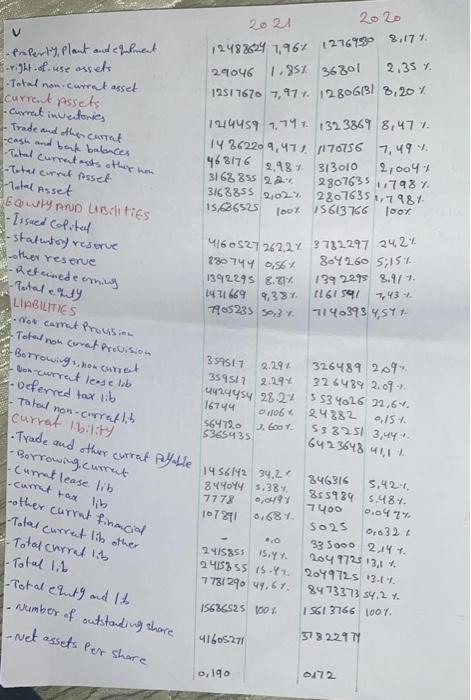 2021 2020
- Property, Plant and eqfment 12488624 7,96% 12769580 8,17%
- right-of-use assets 29046 1.85% 36801 2,35%
- Total non-current asset 12517670 7,97% 12806131 8,20%
Current Assets
- Currat inventories 1214459 7.74% 1323869 8,47%
- Trade and other currat 1486220 9,47% 1170756 7,49%
- cash and bank balances 468176 2,98% 313010 2,004%
- Total current assts other non 3168855 2,2% 2807635 1,798%
- Total current Asset 3168855 2,02% 2807635 1,798%
- Total Asset 15,686525 100% 15613766 100%
EQUITY AND LIBILITIES
- Issued Capital 4160527 262,2% 3782297 24,2%
- statutory reserve 880744 0,56% 804260 5,15%
- other reserve 1392295 8.87% 1392295 8.91%
- Retained earning 1471669 9,38% 1161541 7,43%
- Total equty 7905235 50,3% 7140393 4,57%
LIABILITIES
- Non currat Provision 359517 2.29% 326489 2,09%
Total non currat Provision 359517 2.29% 326489 2.09%
- Borrowings, non current 4424454 28.2% 3534026 22,6%
- Non-current lease lib 16744 0,106% 24882 0,15%
- Deferred tax lib 564720 3.600% 538251 3,44%
- Total non-currat lib 5365435 6423648 41,1%
Currat libility
- Trade and other currat Payable 1456142 34,2% 846316 5,42%
- Borrowing, current 844044 5.38% 855984 5.48%
- Currat lease lib 7778 0,049% 7400 0,047%
- Currat tax lib 107891 0,68% 5025 0,032%
- other currat financial - 0,0 335000 2,14%
- Total currat lib other 2415855 15,4% 2049725 13,1%
- Total currat lib 2415855 15.4% 2049725 13.1%
- Total lib 7781290 49,6% 8473373 54.2%
- Total equty and lib 15686525 100% 15613766 100%
- Number of outstanding share 41605271 37822971
- Net assets Per share 0,190 0172